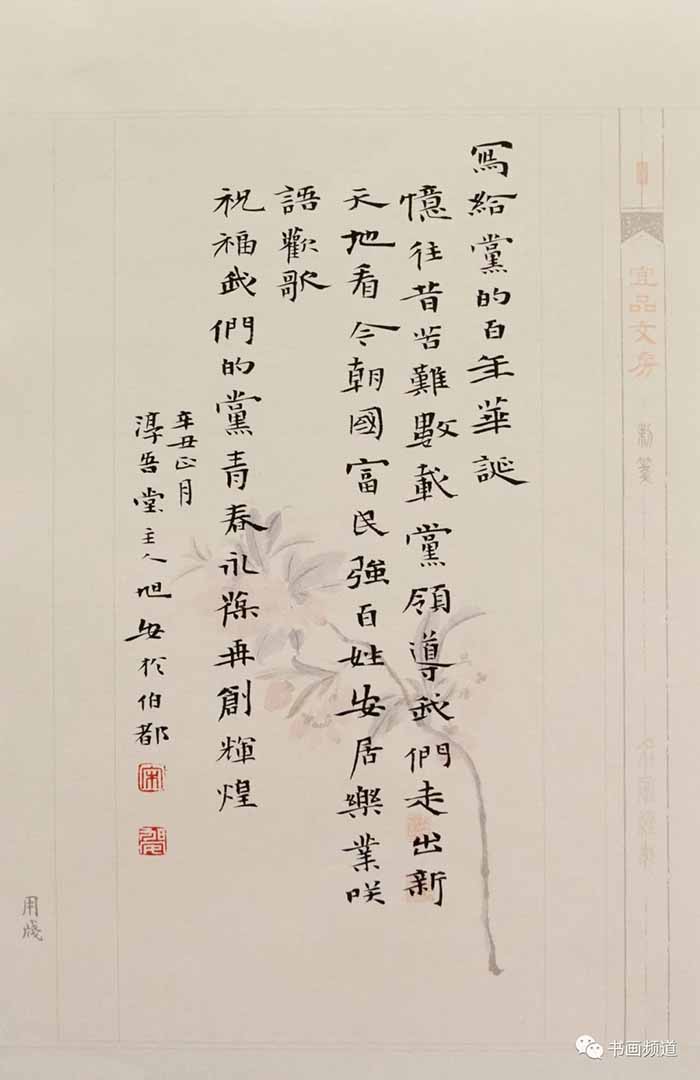 寫給黨的百年華誕
憶往昔苦難數載黨領導我們走出新
天地看今朝國富民強百姓安居樂業咲
語歡歌
祝福我們的黨青春永葆再創輝煌
辛丑正月
淳吾堂主人旭安於伯都
宜品文房
制箋
用牋
书画频道